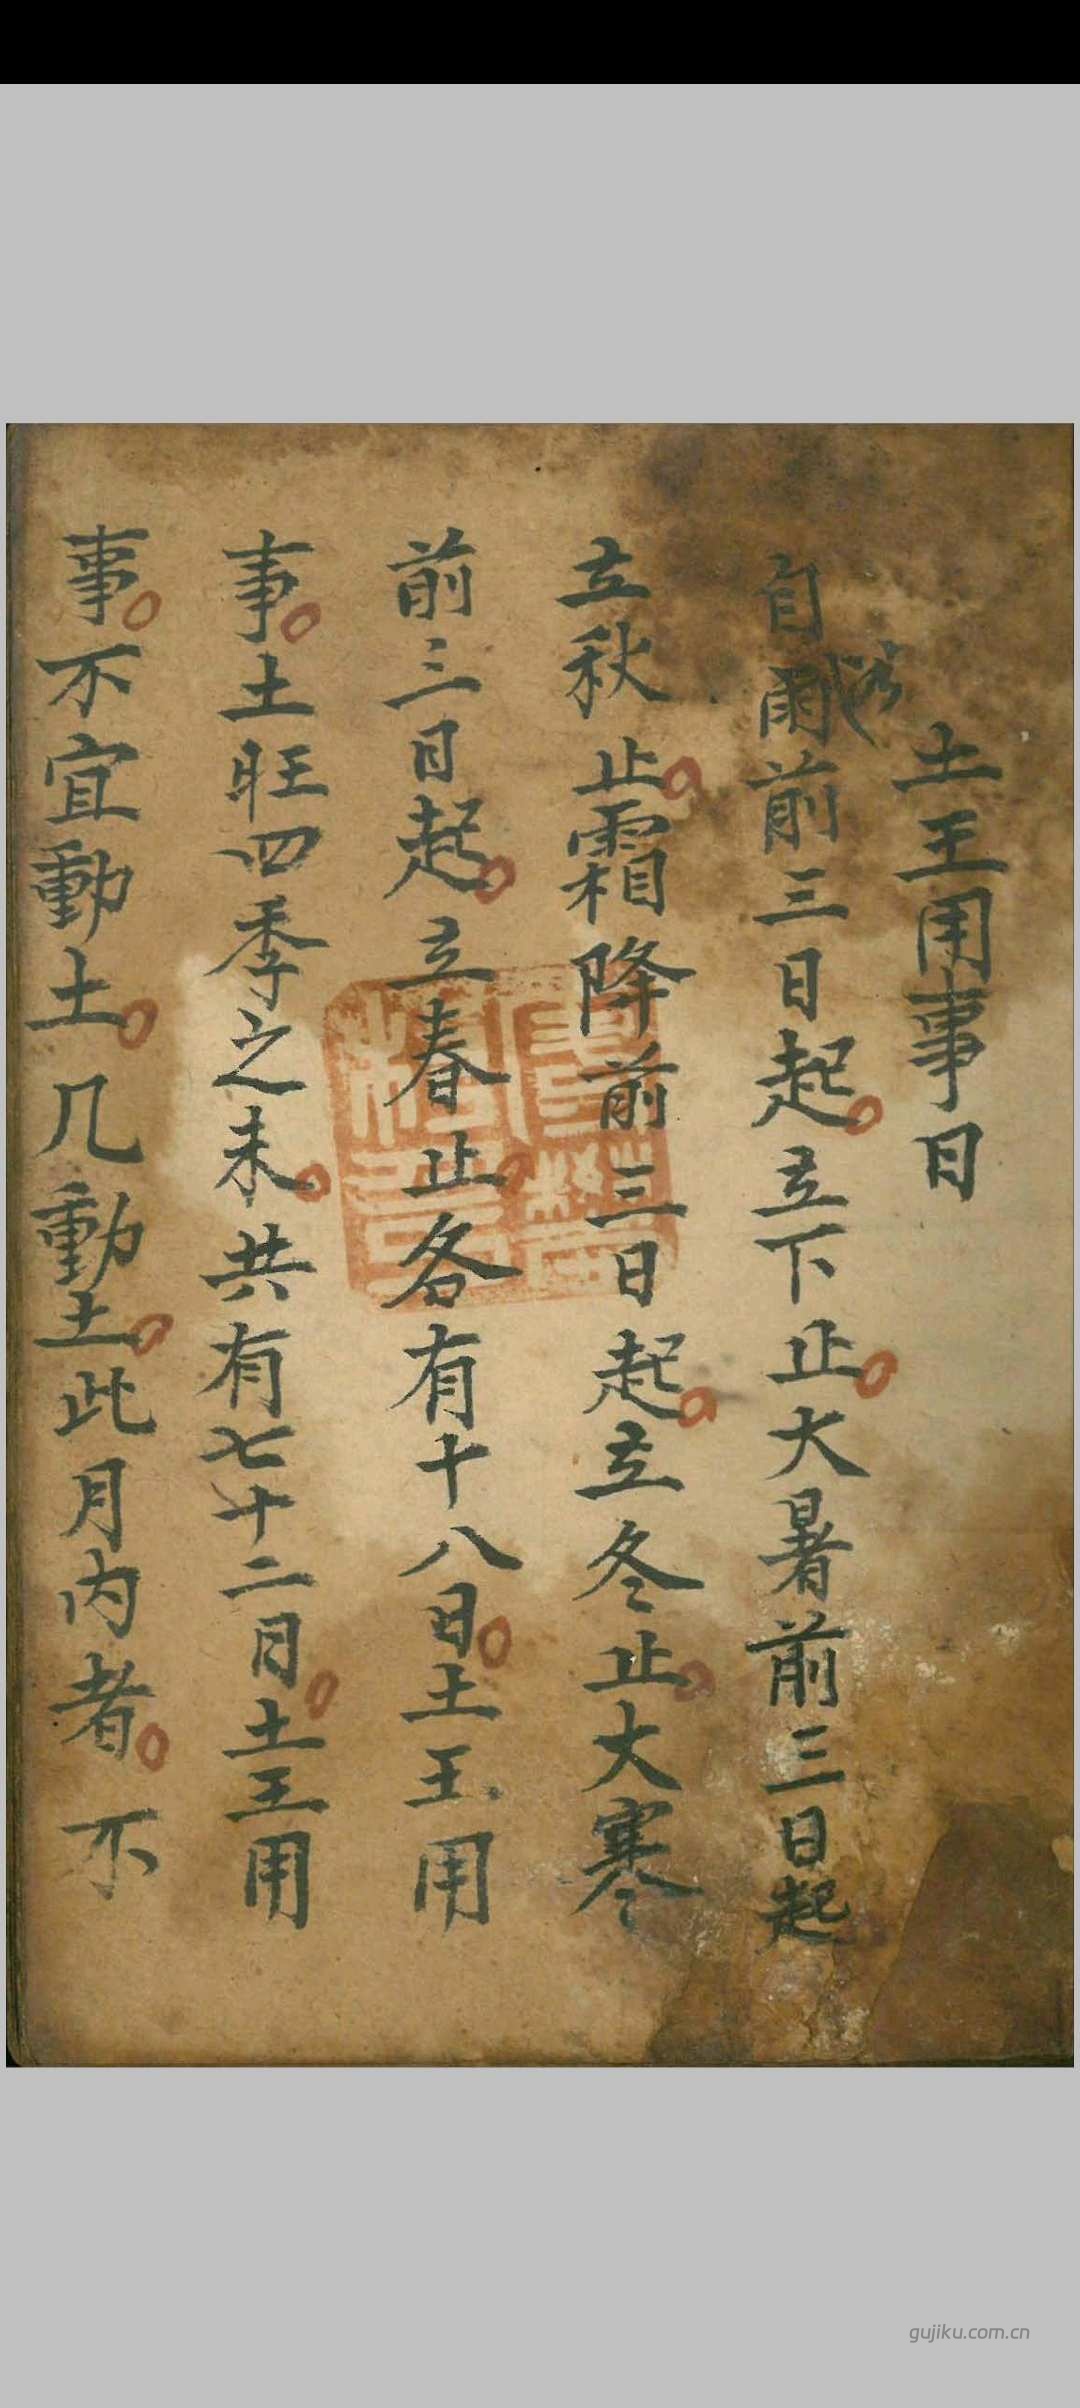 土王用事日
自谷雨前三日起立下止大暑前三日起
立秋止霜降前三日起立冬止大寒
前三日起立春止各有十八日土王用
事土旺四季之末共有七十二日土王用
事不宜動土几動土此月内者不
gujiku.com.cn